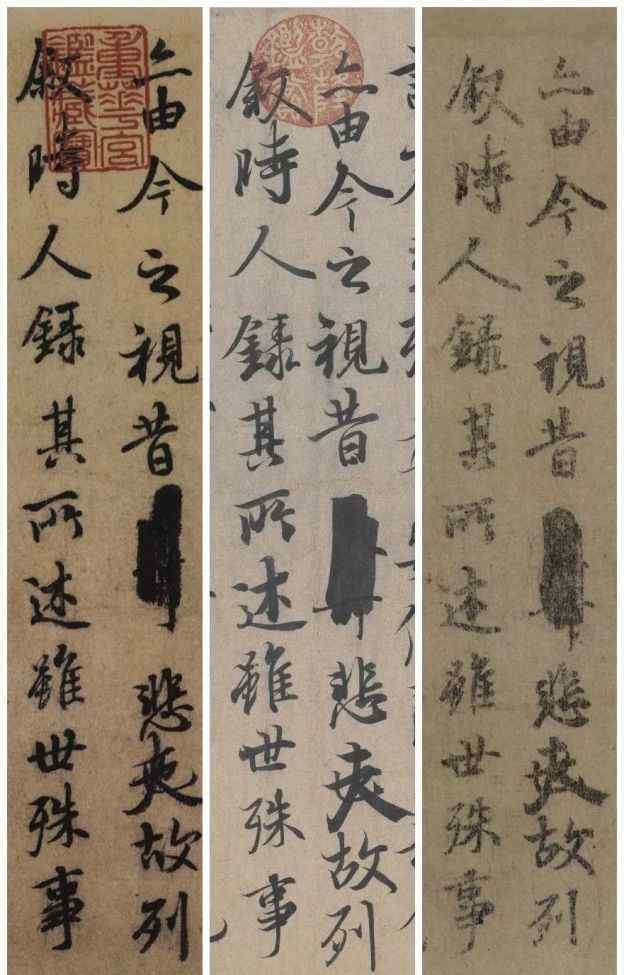 重華宮鑑藏寶
亦由今之視昔悲夫故列
敘時人錄其所述雖世殊事
亦由今之視昔悲夫故列
敘時人錄其所述雖世殊事
亦由今之視昔悲夫故列
敘時人錄其所述雖世殊事